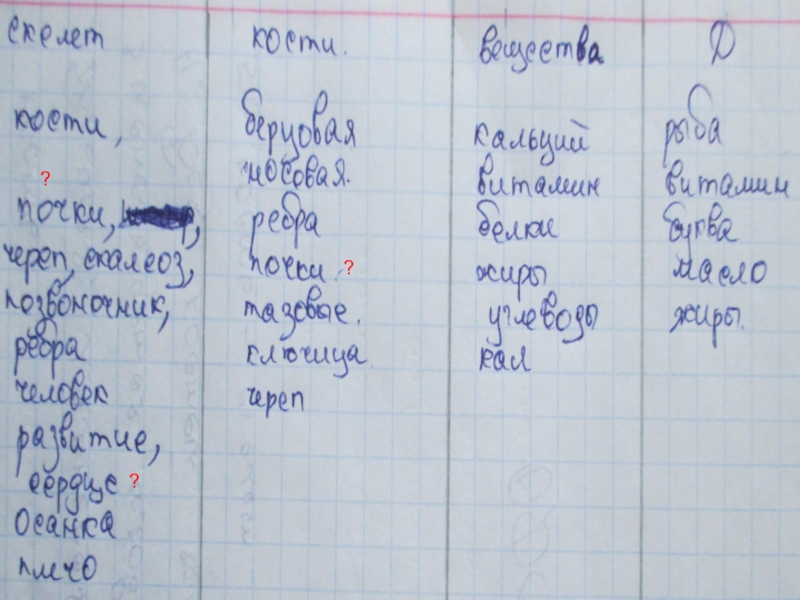 скелет
кости,
?
почки,
череп, скалеоз,
позвоночник,
ребра
человек
развитие,
сердце ?
осанка
плечо
кости.
берцовая
носовая.
ребра
почки. ?
тазовые.
ключица.
череп
вещества
кальций
витамин
белки
жиры
углеводы
кал
Д
рыба
витамин
буква
масло
жиры.